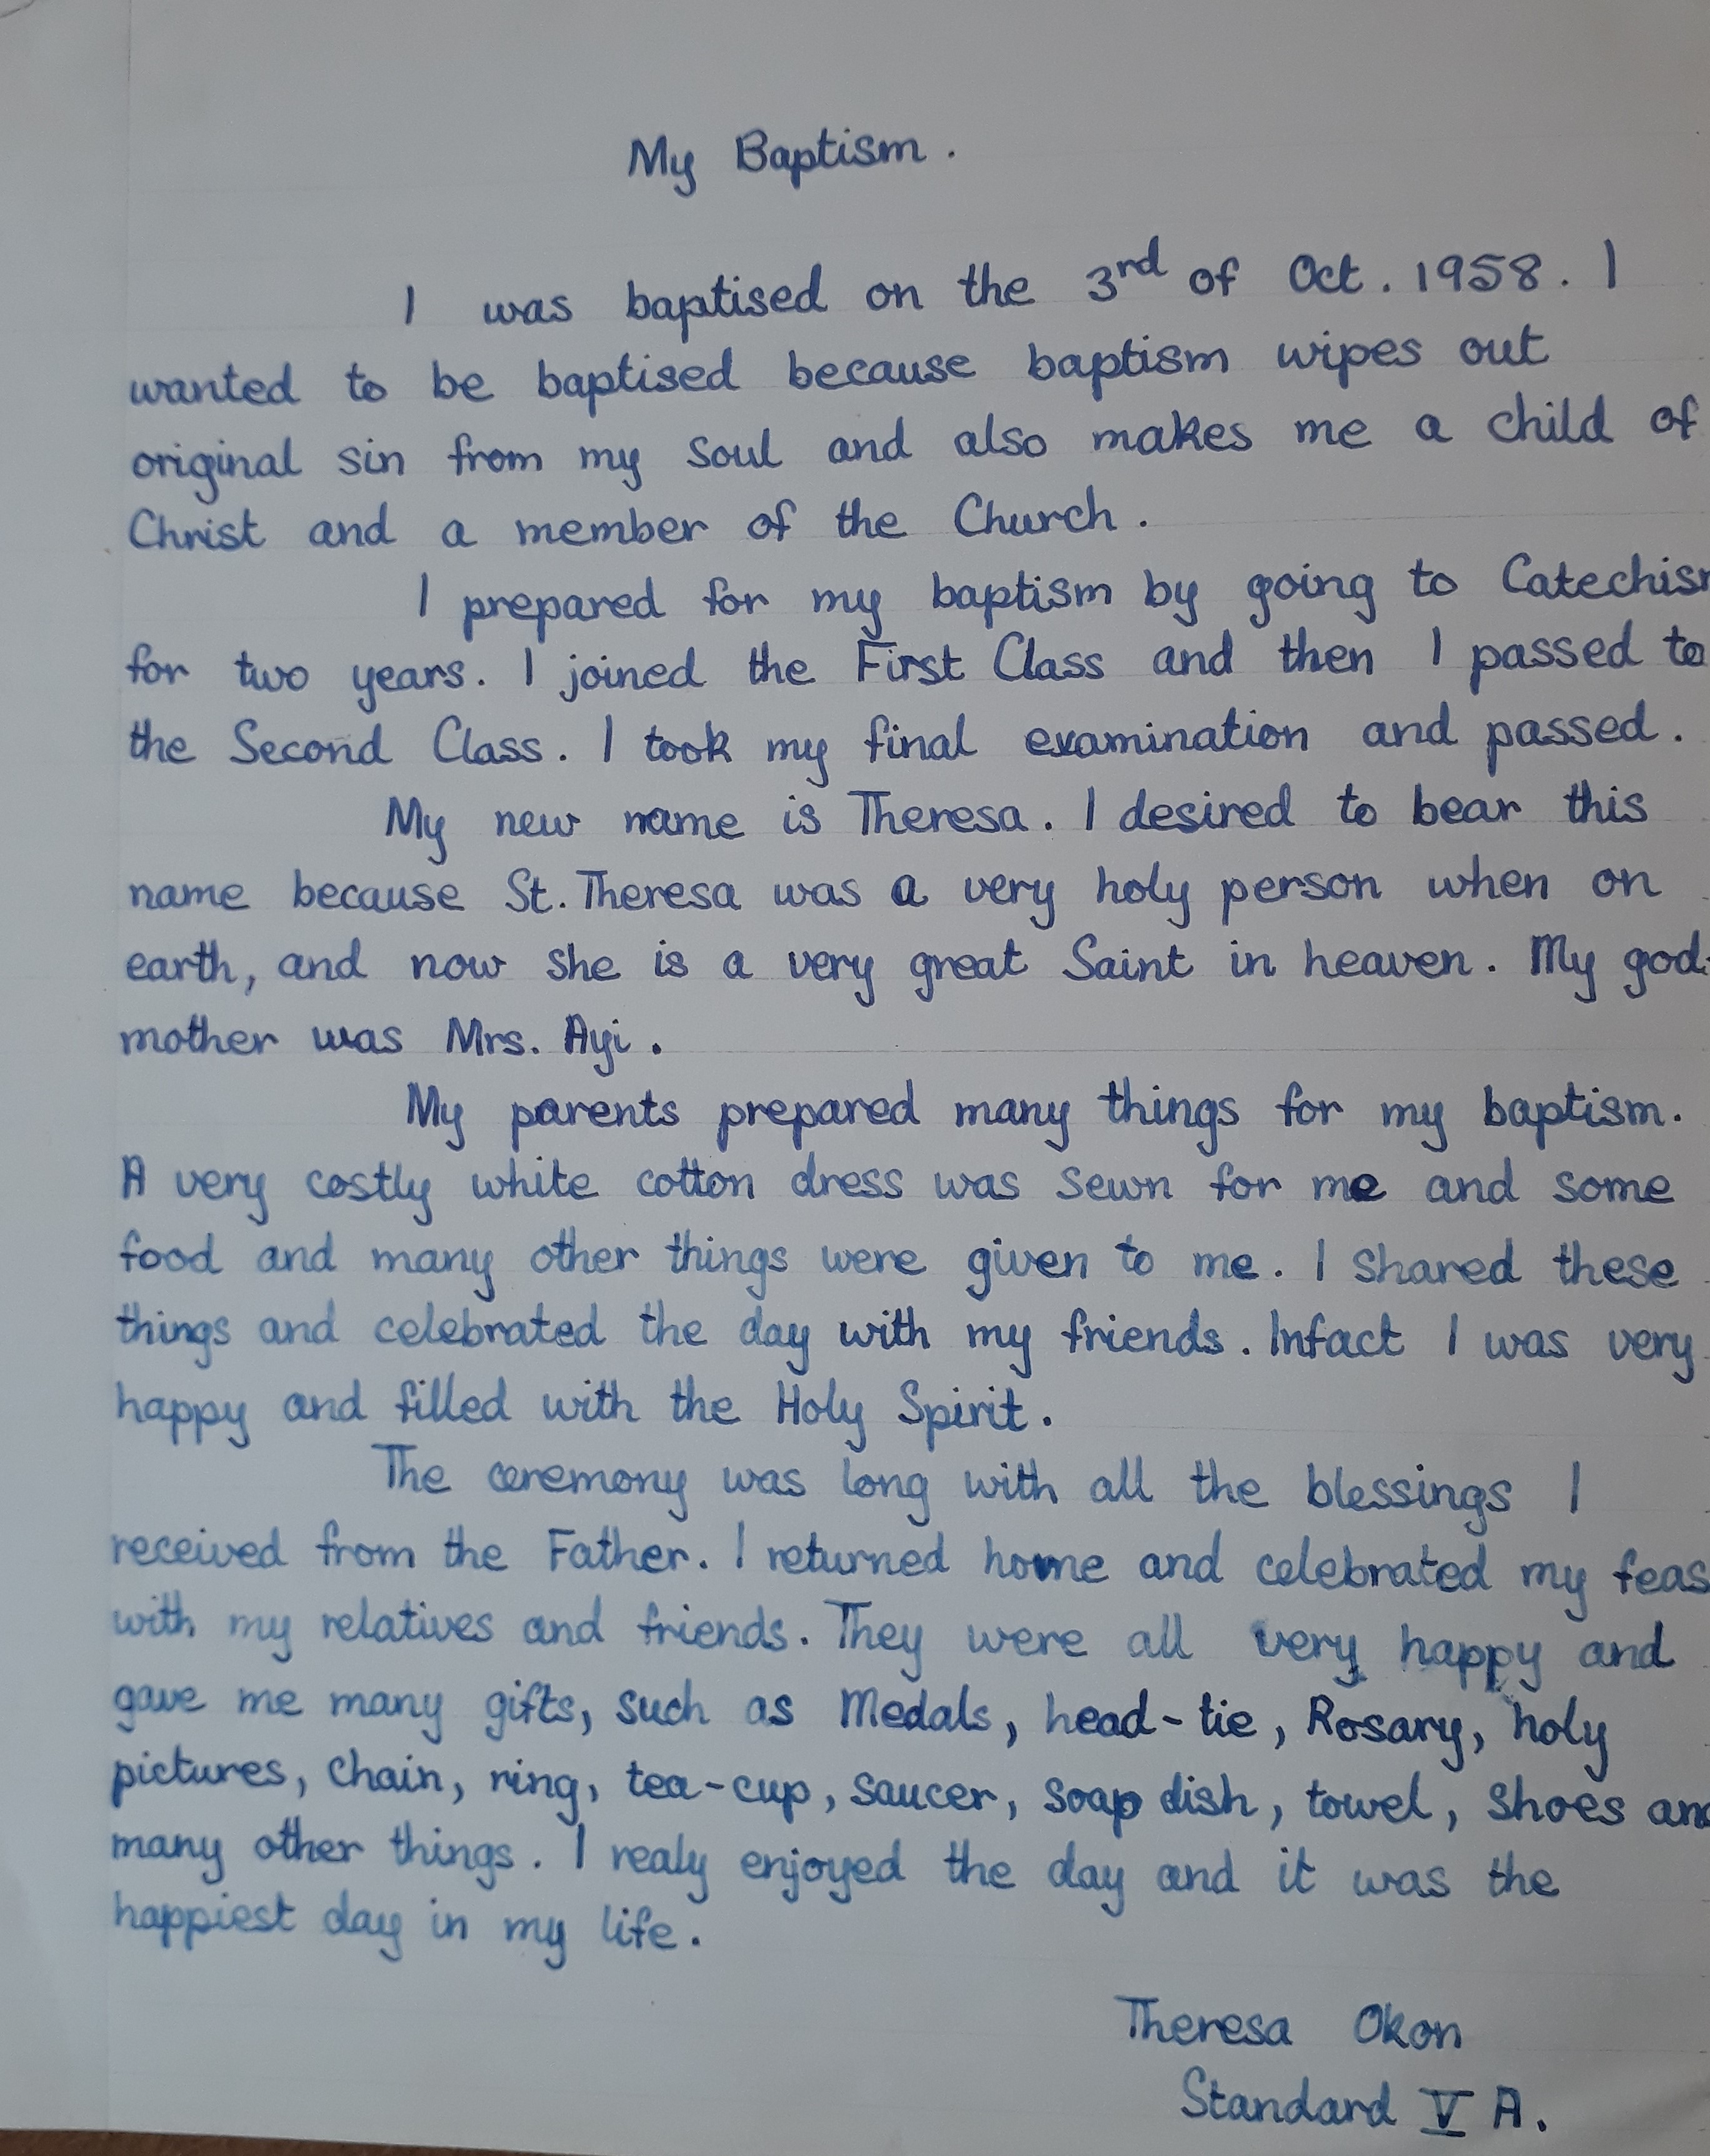 My Baptism.
I was baptised on the 3rd of Oct. 1958. I
wanted to be baptised because baptism wipes out
original sin from my soul and also makes me a child of
Christ and a member of the Church.
I prepared for my baptism by going to Catechism
for two years. I joined the First Class and then I passed to
the Second Class. I took my final examination and passed.
My new name is Theresa. I desired to bear this
name because St. Theresa was a very holy person when on
earth, and now she is a very great Saint in heaven. My god-
mother was Mrs. Ayi.
My parents prepared many things for my baptism.
A very costly white cotton dress was sewn for me and some
food and many other things were given to me. I shared these
things and celebrated the day with my friends. Infact I was very
happy and filled with the Holy Spirit.
The ceremony was long with all the blessings I
received from the Father. I returned home and celebrated my feas
with my relatives and friends. They were all very happy and
gave me many gifts, such as Medals, head-tie, Rosary, holy
pictures, chain, ring, tea-cup, saucer, soap dish, towel, shoes and
many other things. I realy enjoyed the day and it was the
happiest day in my life.
Theresa Okon
Standard V A.